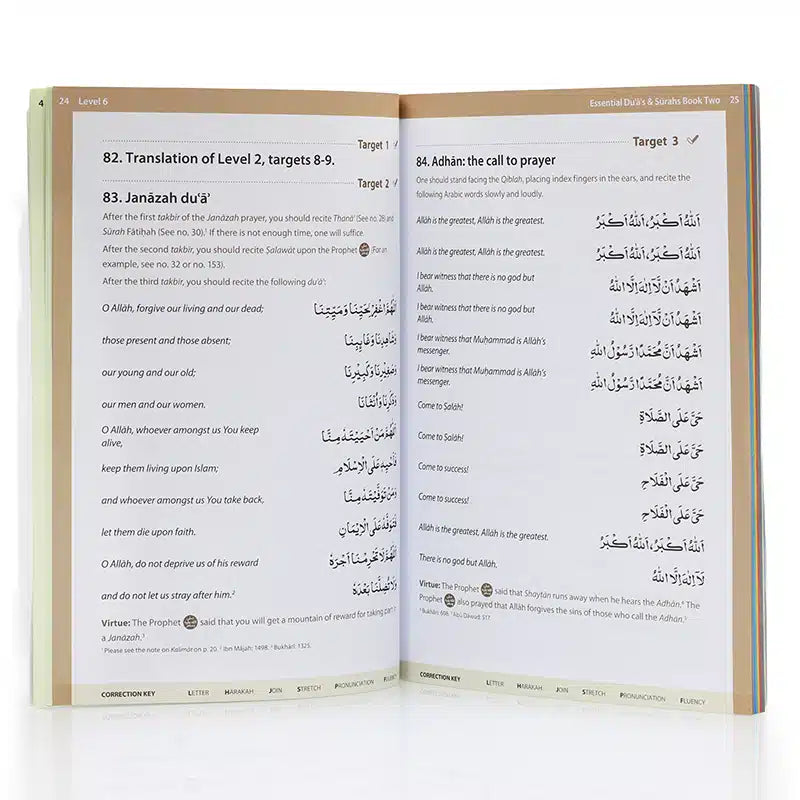 4
24 Level 6
Target 1 ✓
82. Translation of Level 2, targets 8-9.
Target 2 ✓
83. Janāzah du‘ā’
After the first takbir of the Janāzah prayer, you should recite Thanā’ (See no. 28) and
Sūrah Fātiḥah (See no. 30).¹ If there is not enough time, one will suffice.
After the second takbir, you should recite Ṣalawāt upon the Prophet (For an
example, see no. 32 or no. 153).
After the third takbir, you should recite the following du‘ā’:
O Allāh, forgive our living and our dead; اَللّٰهُمَّ اغْفِرْ لِحَيِّنَا وَمَيِّتِنَا
those present and those absent; وَشَاهِدِنَا وَغَآئِبِنَا
our young and our old; وَصَغِيْرِنَا وَكَبِيْرِنَا
our men and our women. وَذَكَرِنَا وَاُنْثَانَا
O Allāh, whoever amongst us You keep
alive, اَللّٰهُمَّ مَنْ اَحْيَيْتَهٗ مِنَّا
keep them living upon Islam; فَاَحْيِهٖ عَلَى الْاِسْلَامِ
and whoever amongst us You take back, وَمَنْ تَوَفَّيْتَهٗ مِنَّا
let them die upon faith. فَتَوَفَّهٗ عَلَى الْاِيْمَانِ
O Allāh, do not deprive us of his reward اَللّٰهُمَّ لَا تَحْرِمْنَا اَجْرَهٗ
and do not let us stray after him.² وَلَا تُضِلَّنَا بَعْدَهٗ
Virtue: The Prophet said that you will get a mountain of reward for taking part in
a Janāzah.³
¹ Please see the note on Kalimāt on p. 20. ² Ibn Mājah: 1498. ³ Bukhārī: 1325.
CORRECTION KEY LETTER HARAKAH JOIN STRETCH PRONUNCIATION FLUENCY
Essential Du‘ā’s & Sūrahs Book Two 25
Target 3 ✓
84. Adhān: the call to prayer
One should stand facing the Qiblah, placing index fingers in the ears, and recite the
following Arabic words slowly and loudly.
Allāh is the greatest, Allāh is the greatest. اَللّٰهُ اَكْبَرُ، اَللّٰهُ اَكْبَرُ
Allāh is the greatest, Allāh is the greatest. اَللّٰهُ اَكْبَرُ، اَللّٰهُ اَكْبَرُ
I bear witness that there is no god but
Allāh. اَشْهَدُ اَنْ لَّآ اِلٰهَ اِلَّا اللّٰهُ
I bear witness that there is no god but
Allāh. اَشْهَدُ اَنْ لَّآ اِلٰهَ اِلَّا اللّٰهُ
I bear witness that Muḥammad is Allāh’s
messenger. اَشْهَدُ اَنَّ مُحَمَّدًا رَّسُوْلُ اللّٰهِ
I bear witness that Muḥammad is Allāh’s
messenger. اَشْهَدُ اَنَّ مُحَمَّدًا رَّسُوْلُ اللّٰهِ
Come to Ṣalāh! حَيَّ عَلَى الصَّلَاةِ
Come to Ṣalāh! حَيَّ عَلَى الصَّلَاةِ
Come to success! حَيَّ عَلَى الْفَلَاحِ
Come to success! حَيَّ عَلَى الْفَلَاحِ
Allāh is the greatest, Allāh is the greatest. اَللّٰهُ اَكْبَرُ، اَللّٰهُ اَكْبَرُ
There is no god but Allāh. لَآ اِلٰهَ اِلَّا اللّٰهُ
Virtue: The Prophet said that Shayṭān runs away when he hears the Adhān.⁴ The
Prophet also prayed that Allāh forgives the sins of those who call the Adhān.⁵
⁴ Bukhārī: 608. ⁵ Abū Dāwūd: 517.
CORRECTION KEY LETTER HARAKAH JOIN STRETCH PRONUNCIATION FLUENCY